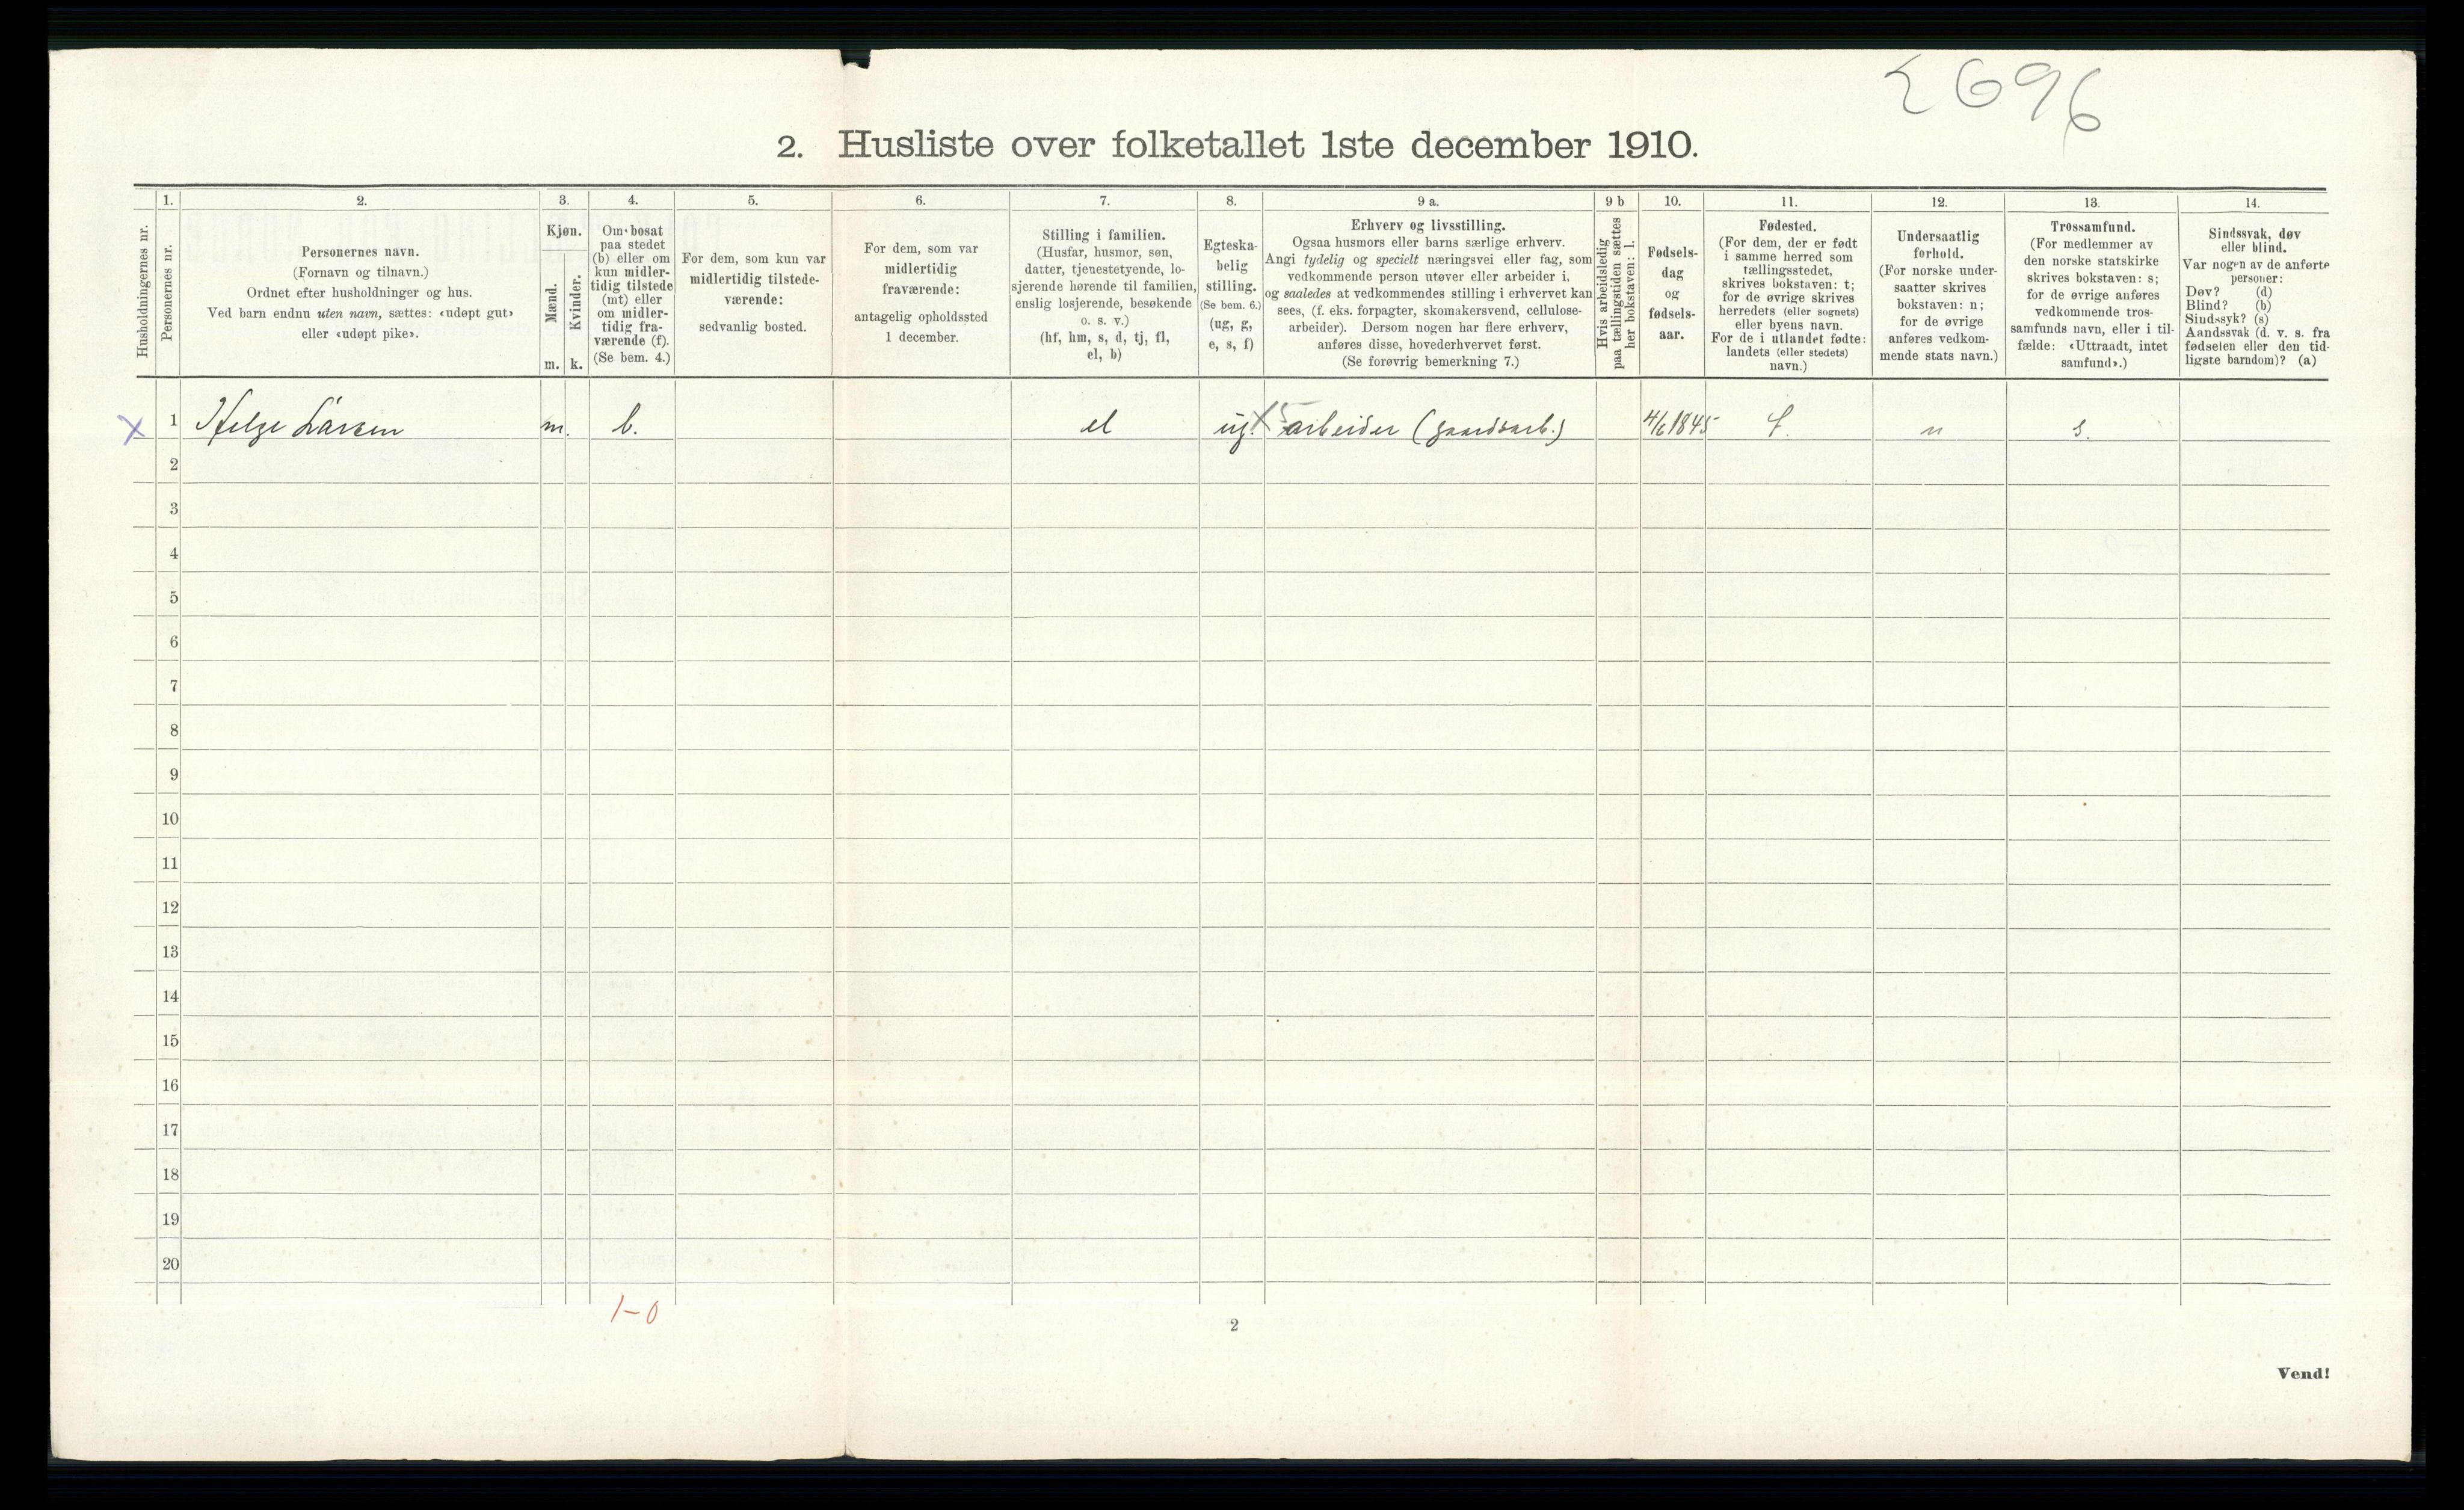 2696
2. Husliste over folketallet 1ste december 1910.
Husholdningernes nr.
1.
Personernes nr.
2.
Personernes navn.
(Fornavn og tilnavn.)
Ordnet efter husholdninger og hus.
Ved barn endnu uten navn, sættes: «udøpt gut»
eller «udøpt pike».
3.
Kjøn.
Mænd.
Kvinder.
m. k.
4.
Om bosat
paa stedet
(b) eller om
kun midler-
tidig tilstede
(mt) eller
om midler-
tidig fra-
værende (f).
(Se bem. 4.)
5.
For dem, som kun var
midlertidig tilstede-
værende:
sedvanlig bosted.
6.
For dem, som var
midlertidig
fraværende:
antagelig opholdssted
1 december.
7.
Stilling i familien.
(Husfar, husmor, søn,
datter, tjenestetyende, lo-
sjerende hørende til familien,
enslig losjerende, besøkende
o. s. v.)
(hf, hm, s, d, tj, fl,
el, b)
8.
Egteska-
belig
stilling.
(Se bem. 6.)
(ug, g,
e, s, f)
9 a.
Erhverv og livsstilling.
Ogsaa husmors eller barns særlige erhverv.
Angi tydelig og specielt næringsvei eller fag, som
vedkommende person utøver eller arbeider i,
og saaledes at vedkommendes stilling i erhvervet kan
sees, (f. eks. forpagter, skomakersvend, cellulose-
arbeider). Dersom nogen har flere erhverv,
anføres disse, hovederhvervet først.
(Se forøvrig bemerkning 7.)
9 b
Hvis arbeidsledig
paa tællingstiden sættes
her bokstaven: l.
10.
Fødsels-
dag
og
fødsels-
aar.
11.
Fødested.
(For dem, der er født
i samme herred som
tællingsstedet,
skrives bokstaven: t;
for de øvrige skrives
herredets (eller sognets)
eller byens navn.
For de i utlandet fødte:
landets (eller stedets)
navn.)
12.
Undersaatlig
forhold.
(For norske under-
saatter skrives
bokstaven: n;
for de øvrige
anføres vedkom-
mende stats navn.)
13.
Trossamfund.
(For medlemmer av
den norske statskirke
skrives bokstaven: s;
for de øvrige anføres
vedkommende tros-
samfunds navn, eller i til-
fælde: «Uttraadt, intet
samfund».)
14.
Sindssvak, døv
eller blind.
Var nogen av de anførte
personer:
Døv? (d)
Blind? (b)
Sindssyk? (s)
Aandssvak (d. v. s. fra
fødselen eller den tid-
ligste barndom)? (a)
X 1 Helge Larsen m. b. el ug. X 5 arbeider (gaardsarb.) 4/6 1845 t. n s.
2
3
4
5
6
7
8
9
10
11
12
13
14
15
16
17
18
19
20
1-0
2
Vend!